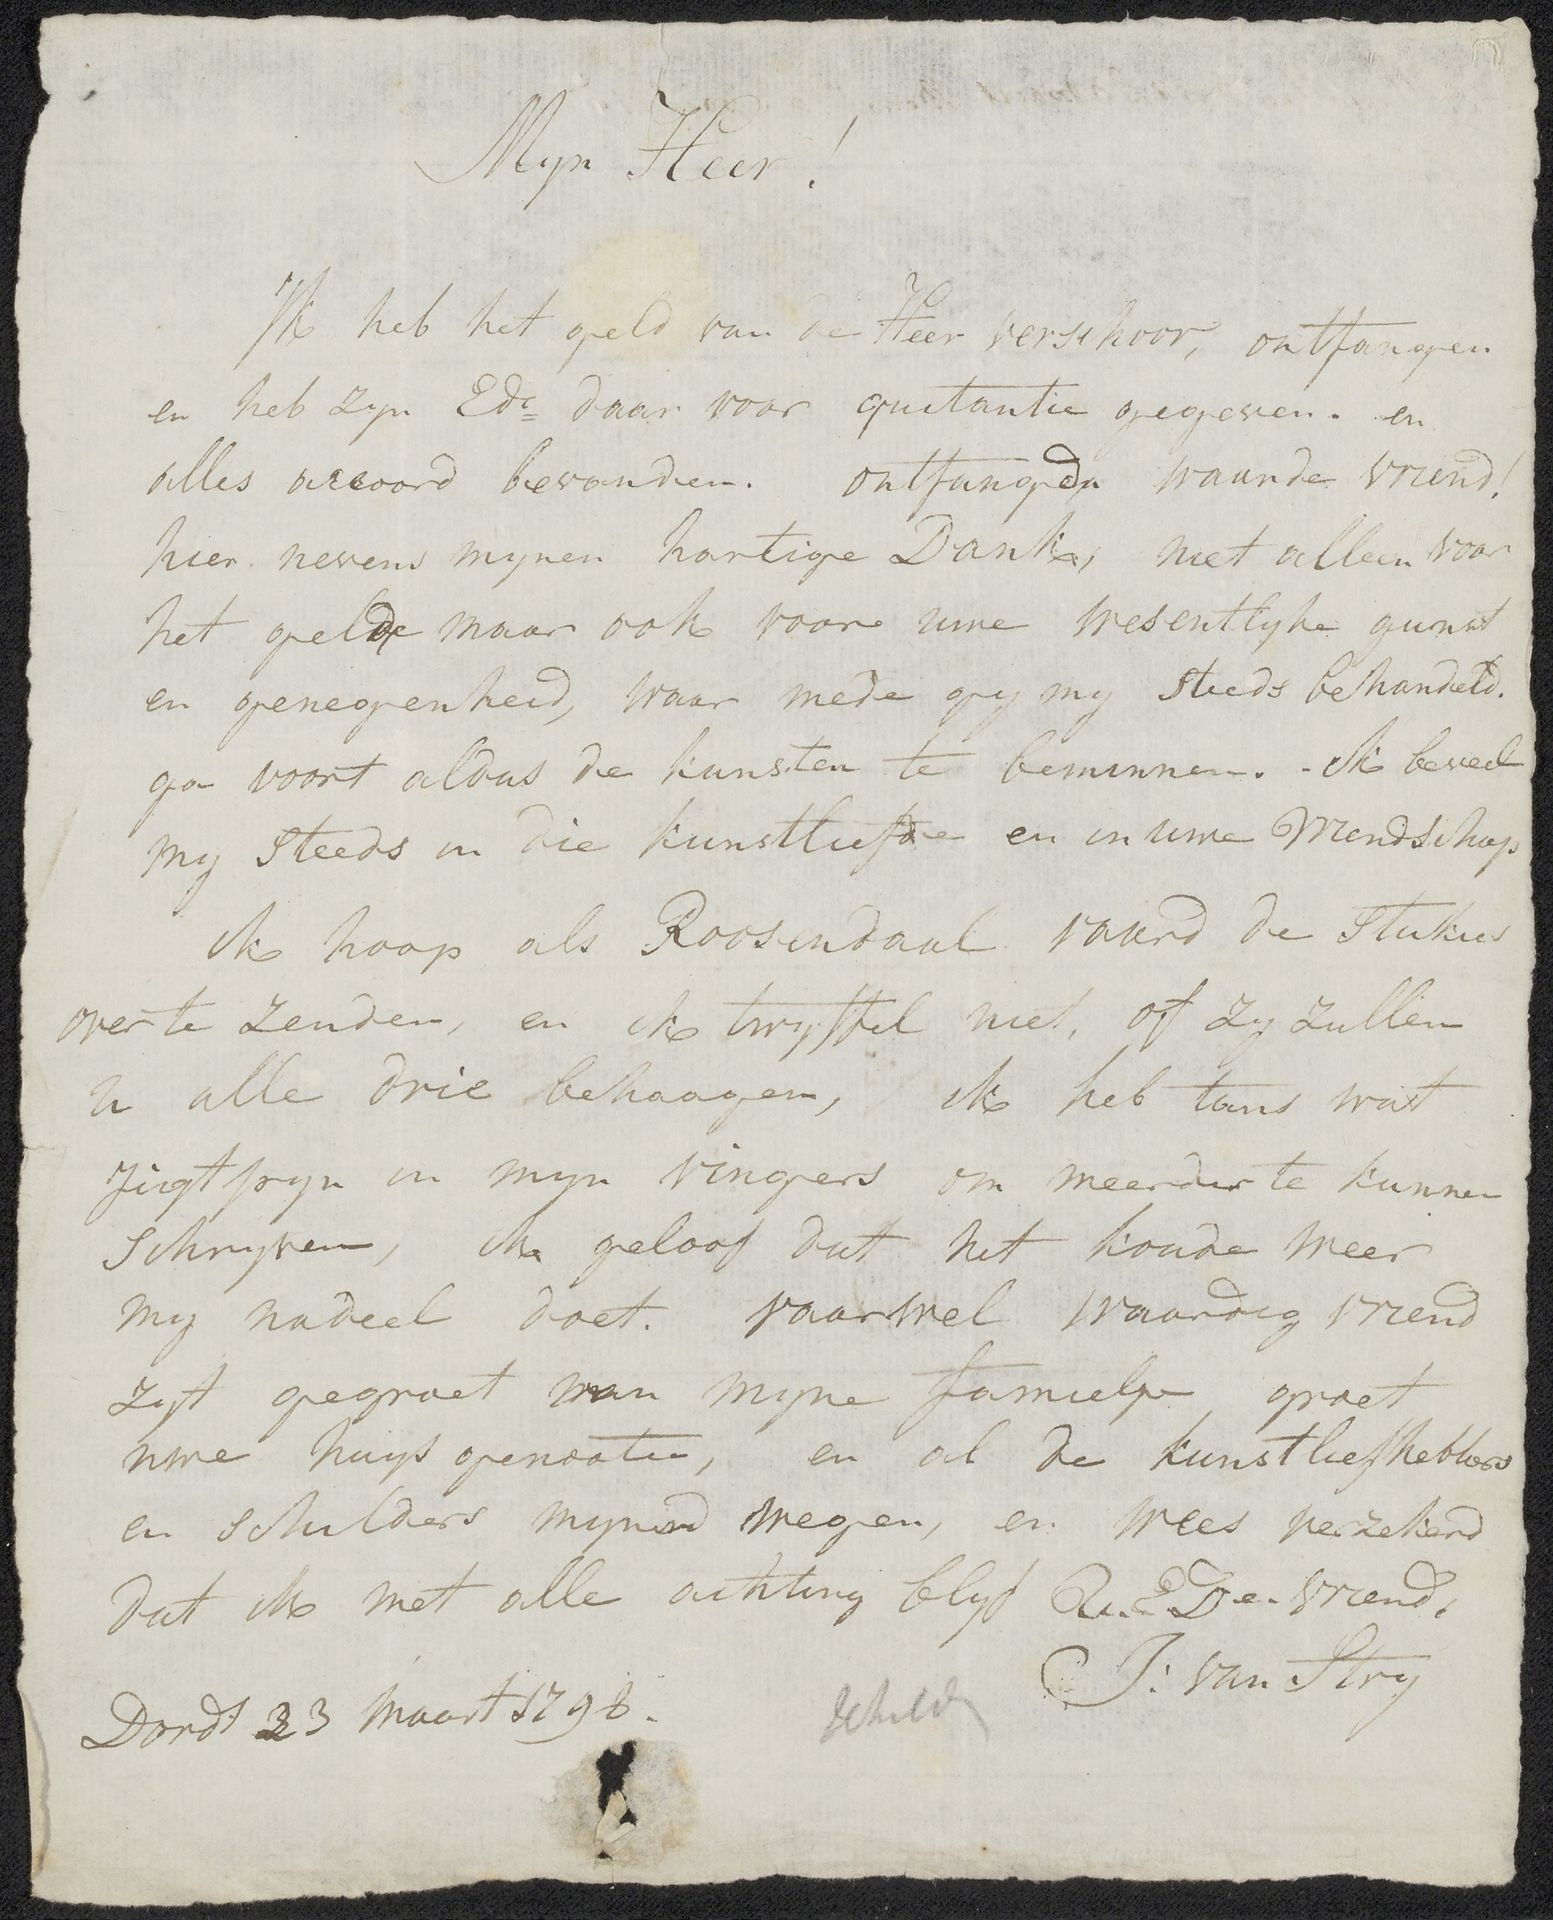 Myn Heer!
Ik heb het geld van de Heer verschoor, ontfangen
en heb zyn Ede daar voor quitantie gegeven. en
alles accoord bevonden. ontfangen waarde vriend!
hier nevens mynen hartige Dank, niet alleen voor
het geld maar ook voor uwe wesentlyke gunst
en genegenheid, waar mede gy my steeds behandeld.
ga voort aldus de kunsten te beminnen. - ik beveel
my steeds in die kunstliefde en in uwe vriendschap
ik hoop als Roosendaal vaard de stukies
over te zenden, en ik twyffel niet, of zy zullen
u alle drie behaagen, ik heb tans wat
jigtpyn in myn vingers om meerder te kunnen
schryven, ik geloof dat het koude weer
my nadeel doet. vaarwel waardig vriend
zyt gegroet van myne famielye groet
uwe huys genooten, en al de kunstliefhebbers
en schilders mynend wegen, en wees verzekerd
dat ik met alle achting blyf U.E.De. vriend,
J: van Stry
Dordt 23 Maart 1798.